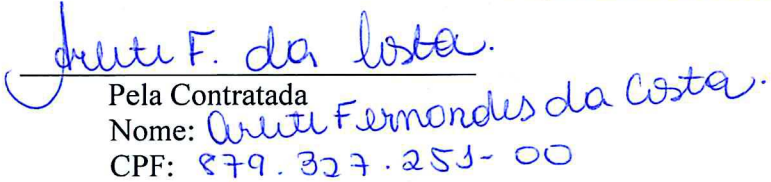 Arleti F. da Costa.
Pela Contratada
Nome: Arleti Fernandes da Costa.
CPF: 879.327.251-00